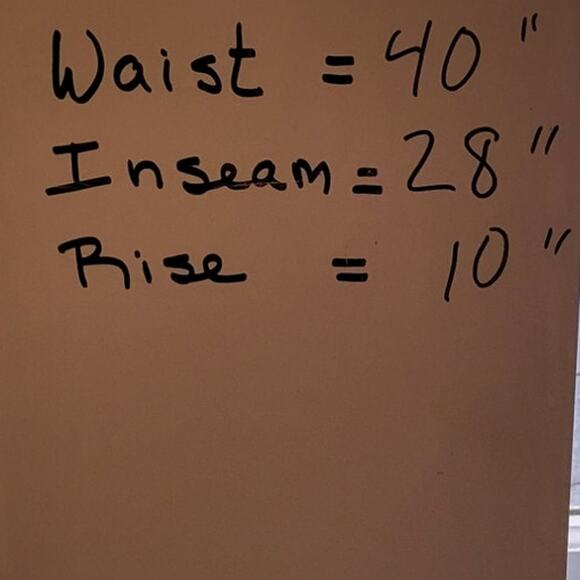 Waist = 40"
Inseam = 28"
Rise = 10"